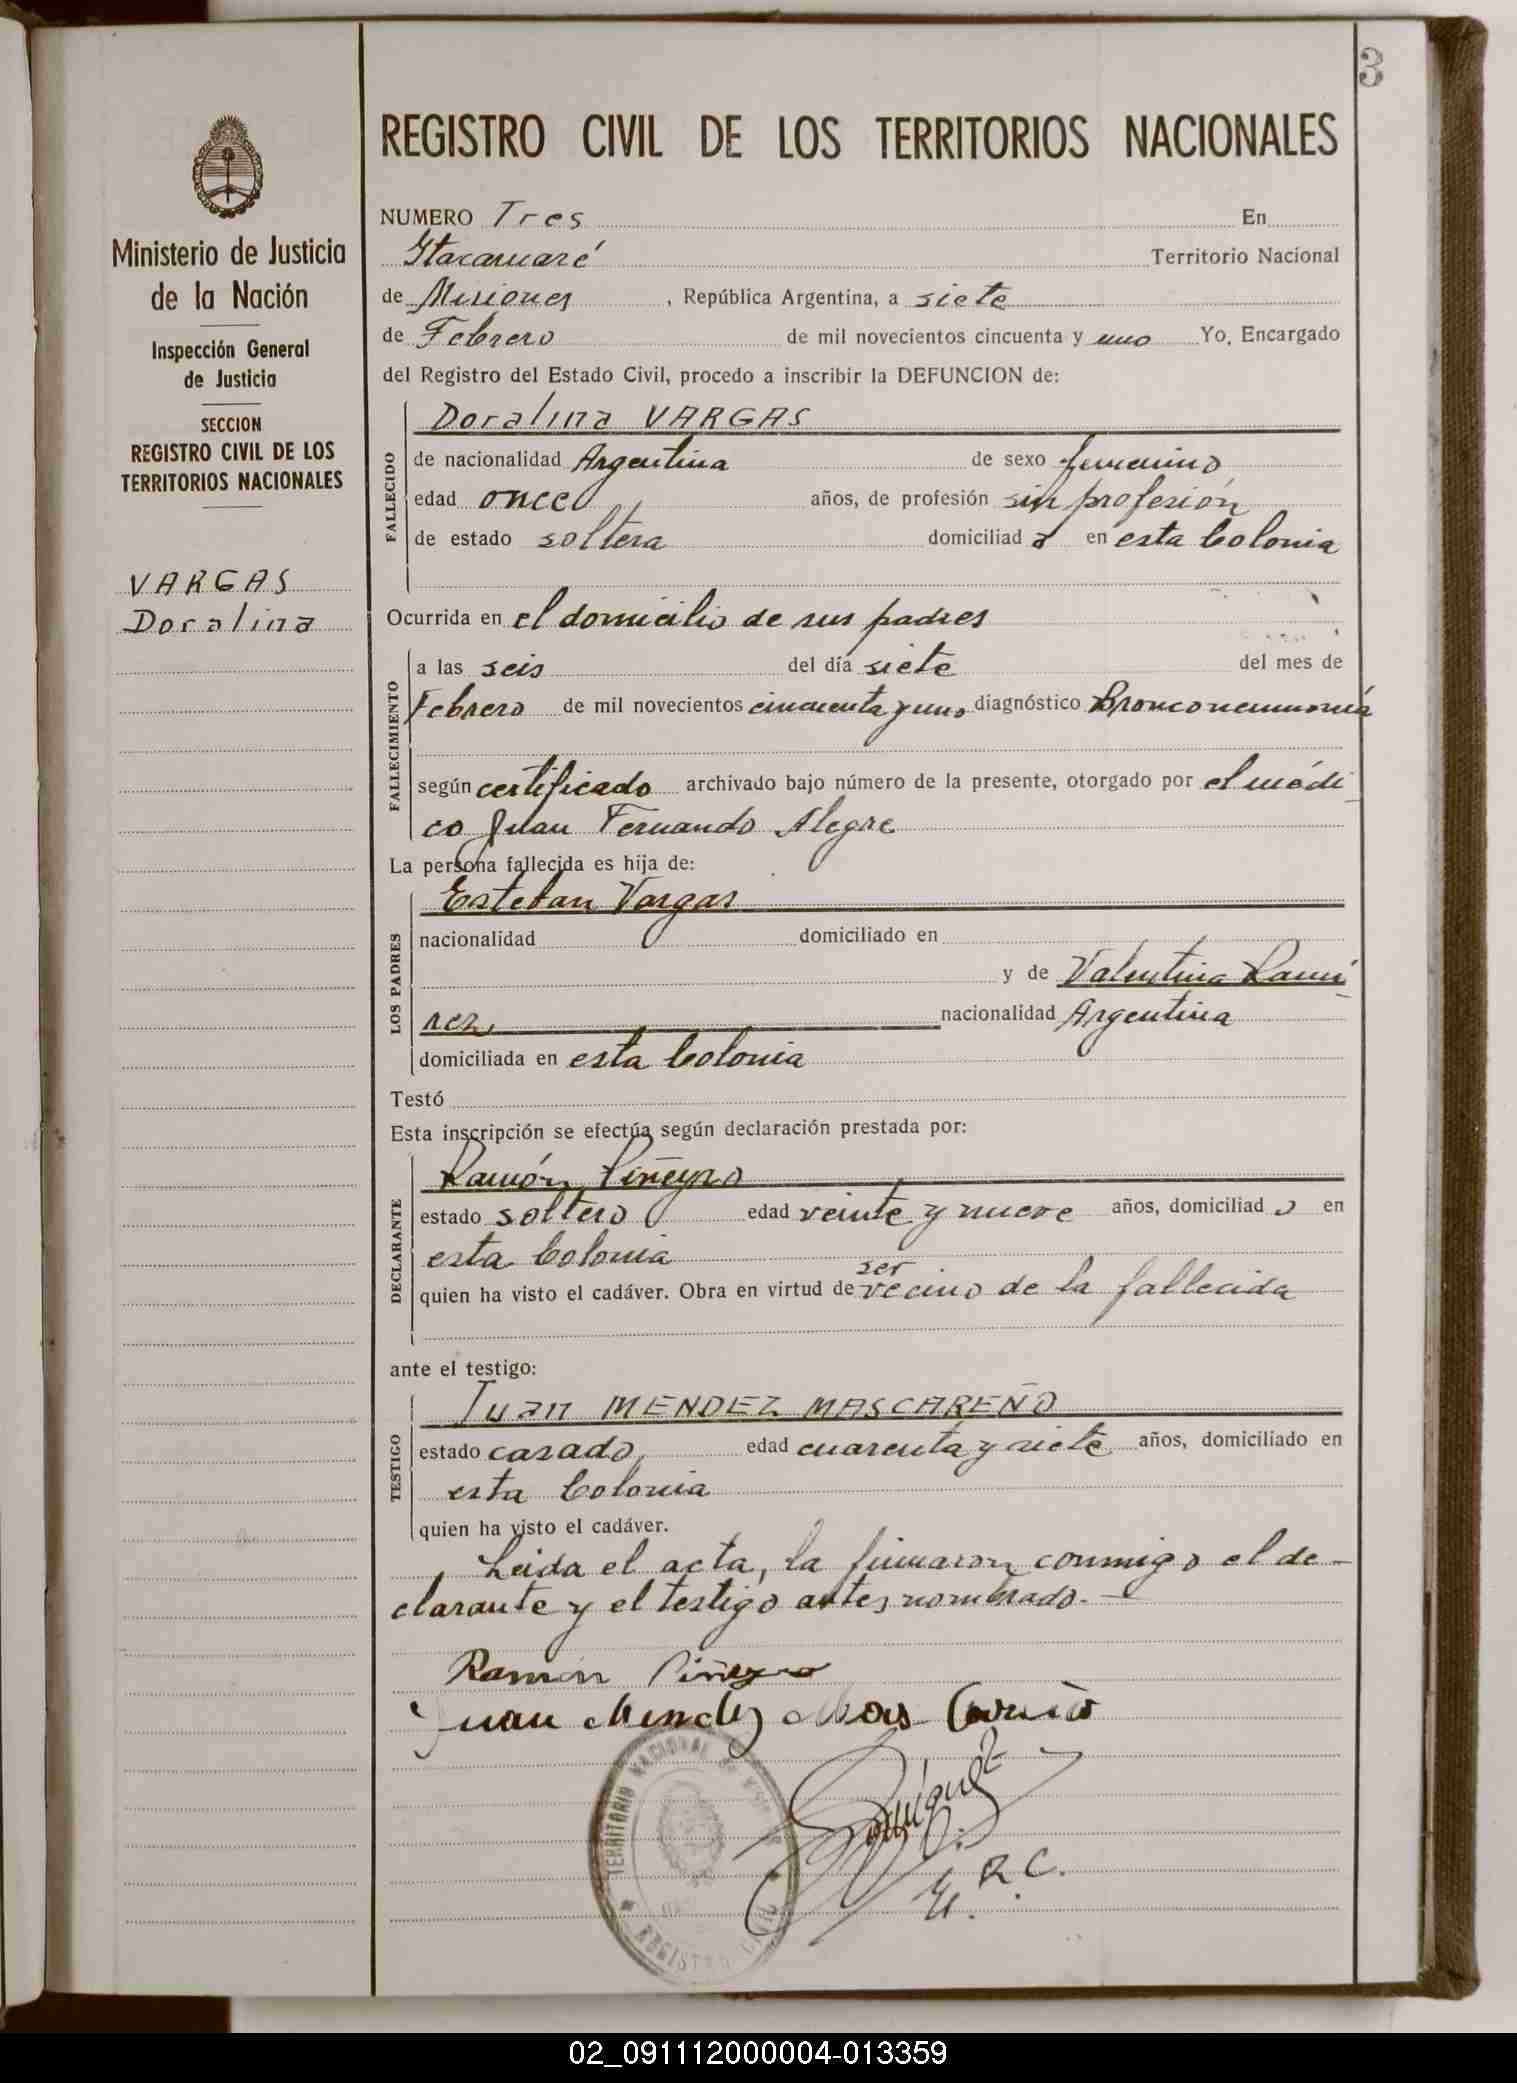 3
REGISTRO CIVIL DE LOS TERRITORIOS NACIONALES
Ministerio de Justicia
de la Nación
Inspección General
de Justicia
SECCION
REGISTRO CIVIL DE LOS
TERRITORIOS NACIONALES
VARGAS
Doralina
NUMERO Tres En
Itacaruaré Territorio Nacional
de Misiones, República Argentina, a siete
de Febrero de mil novecientos cincuenta y uno Yo, Encargado
del Registro del Estado Civil, procedo a inscribir la DEFUNCION de:
FALLECIDO
Doralina VARGAS
de nacionalidad Argentina de sexo femenino
edad once años, de profesión sin profesión
de estado soltera domiciliad a en esta Colonia
Ocurrida en el domicilio de sus padres
FALLECIMIENTO
a las seis del día siete del mes de
Febrero de mil novecientos cincuenta y uno diagnóstico Bronconeumonía
según certificado archivado bajo número de la presente, otorgado por el médi
co Juan Fernando Alegre
La persona fallecida es hija de:
LOS PADRES
Esteban Vargas
nacionalidad domiciliado en
y de Valentina Ramí
rez, nacionalidad Argentina
domiciliada en esta Colonia
Testó
Esta inscripción se efectúa según declaración prestada por:
DECLARANTE
Ramón Piñeyro
estado soltero edad veinte y nueve años, domiciliad o en
esta Colonia
ser
quien ha visto el cadáver. Obra en virtud de vecino de la fallecida
ante el testigo:
TESTIGO
Juan MENDEZ MASCAREÑO
estado casado, edad cuarenta y siete años, domiciliado en
esta Colonia
quien ha visto el cadáver.
Leida el acta, la firmaron conmigo el de-
clarante y el testigo antes nombrado.-
Ramón Piñeyro
Juan Mendez Mas Careño
TERRITORIO NACIONAL DE MISIONES
REGISTRO CIVIL
E. R. C.
02_091112000004-013359